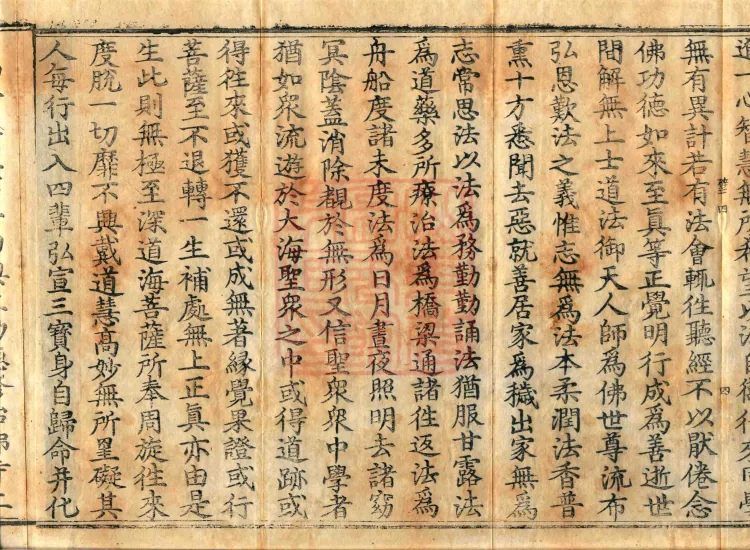 進一心智慧無所
無有異計若有法會輒往聽經不以厭倦念
佛功德如來至眞等正覺明行成爲善逝世
間解無上士道法御天人師爲佛世尊流布
弘恩歎法之義惟志無爲法本柔潤法香普
熏十方悉聞去惡就善居家爲穢出家無爲
志常思法以法爲務勤勤誦法猶服甘露法
爲道藥多所療治法爲橋梁通諸往返法爲
舟船度諸未度法爲日月晝夜照明去諸窈
冥陰蓋消除覩於無形又信聖衆衆中學者
猶如衆流遊於大海聖衆之中或得道跡或
得往來或獲不還或成無著緣覺果證或行
菩薩至不退轉一生補處無上正眞亦由是
生此則無極至深道海菩薩所奉周旋往來
度脫一切靡不興戴道慧高妙無所罣礙其
人每行出入四輩弘宣三寶身自歸命并化